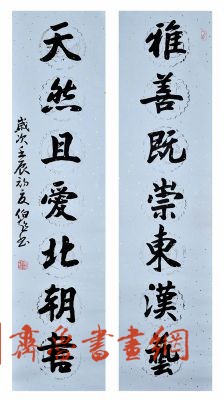 雅善既崇東漢藝
天然且愛北朝書
歲次壬辰初夏
齊魯書畫網